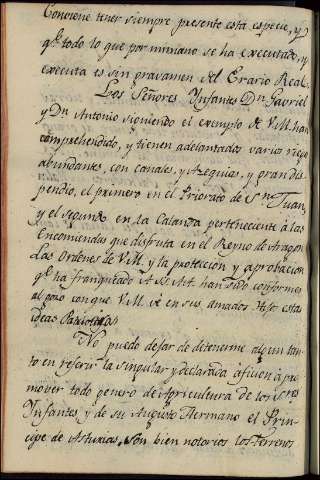 Conviene tener siempre presente esta especie, y
qe. todo lo que por mi mano se ha executado, y
executa es sin gravamen del Erario Real.
Los Señores Infantes Dn. Gabriel
y Dn. Antonio siguiendo el exemplo de V.M. han
comprehendido, y tienen adelantados varios riegos
abundantes, con canales, y Azequias, y gran dis-
pendio, el primero en el Priorato de Sn. Juan,
y el segundo en la Calanda perteneciente à las
Encomiendas que disfruta en el Reyno de Aragon
Las Ordenes de V.M. y la proteccion y aprobacion
qe. ha franqueado à SS.AA. han sido conformes
al gozo con que V.M. vé en sus amados Hijos estas
ideas Patrioticas.
No puedo dejar de detenerme algun tan-
to en referir la singular y declarada aficion à pro-
mover todo genero de Agricultura de los Sres.
Infantes, y de su Augusto Hermano el Prin-
cipe de Asturias. Son bien notorios los terrenos